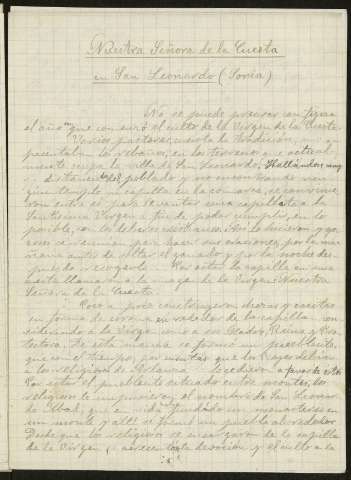 Nuestra Señora de la Cuesta
en San Leonardo (Soria)
No se puede precisar con fijeza
el año en que comenzó el culto de la Virgen de la Cuesta.
Varios pastores, cuenta la tradición,
apacentaban los rebaños, en los terrenos que actual-
mente ocupa la villa de San Leonardo. Hallándose muy
distantes del poblado y no encontrando nin-
gún templo ni capilla en la comarca, se convinie-
ron entre sí para levantar una capillita a la
Santísima Virgen a fin de poder cumplir, en lo
posible, con los deberes cristianos. Así lo hicieron y go-
zosos se reunían para hacer sus oraciones, por la ma-
ñana antes de soltar el ganado y por la noche des-
pués de recogerlo. Por estar la capilla en una
cuesta llamaron a la imagen de la Virgen: Nuestra
Señora de la Cuesta.
Poco a poco construyeron chozas y casitas
en forma de corona en rededor de la capilla con-
siderando a la Virgen como a su Madre, Reina y Pro-
tectora. De esta manera se formó un pueblecito,
que con el tiempo, por cuentas que los Reyes debían
a los religiosos de Arlanza lo cedieron a favor de esto.
Por estar el pueblecito situado entre montes, los
religiosos le impusieron el nombre de San Leonar-
do Abad, que en vida fundó un monasterio en
un monte y allí se formó un pueblo alrededor.
Desde que los religiosos se encargaron de la capilla
de la Virgen, acreció la devoción y el culto a la